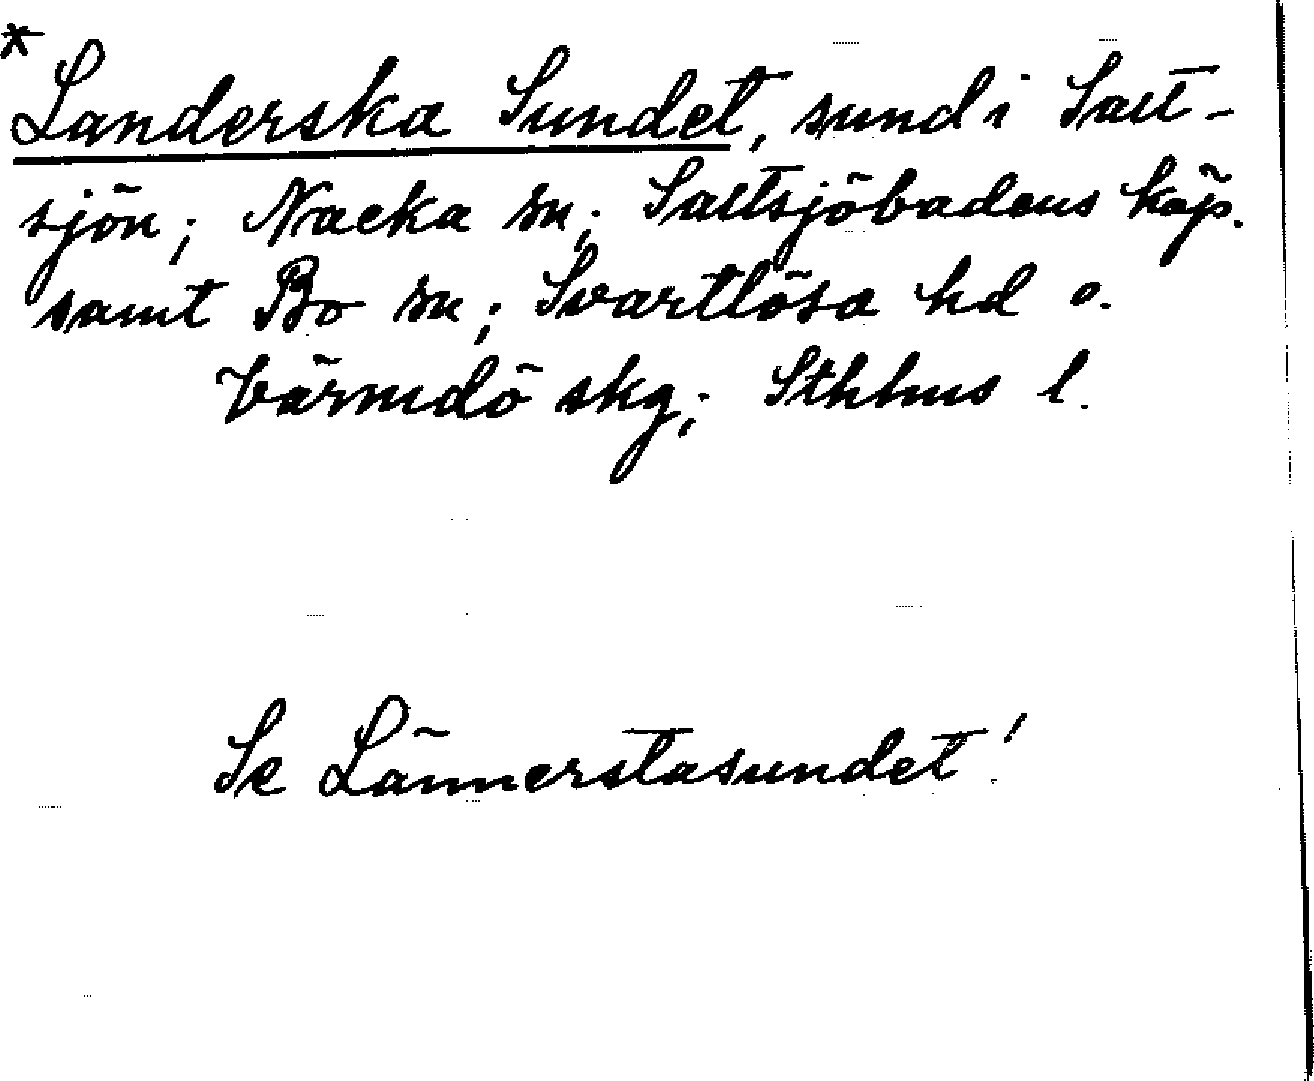 *
Landerska Sundet, sund i Salt-
sjön; Nacka sn; Saltsjöbadens köp.
samt Bo sn; Svartlösa hd o.
Värmdö skg; Sthlms l.
Se Lännerstasundet!